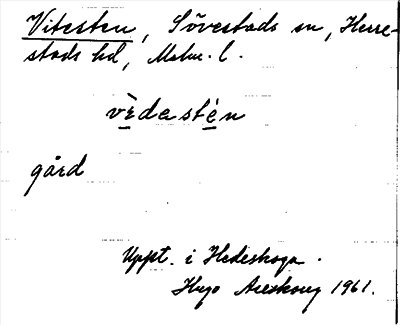 Vitesten, Sövestads sn, Herre-
stads hd, Malm. l.
vìdestèn
gård
Uppt. i Hedeskoga.
Hugo Areskoug 1961.